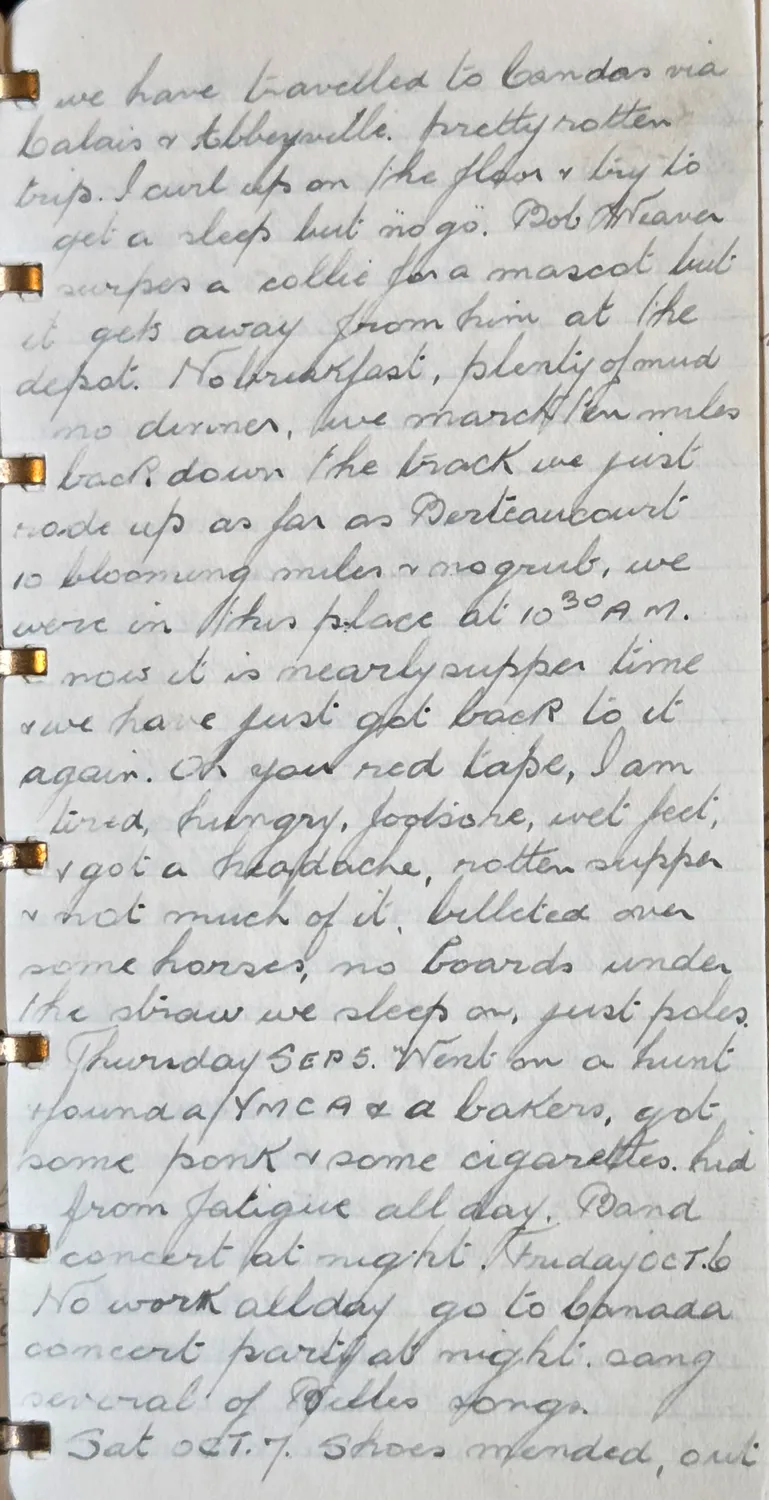 we have travelled to Candas via
Calais & Abbeyville. pretty rotten
trip. I curl up on the floor & try to
get a sleep but "no go". Bob Weaver
swipes a collie for a mascot but
it gets away from him at the
depot. No breakfast, plenty of mud
no dinner, we march ten miles
back down the track we just
rode up as far as Berteaucourt
10 blooming miles & no grub, we
were in this place at 10 30 A M.
& now it is nearly supper time
& we have just got back to it
again. Oh you red tape, I am
tired, hungry, footsore, wet feet,
& got a headache, rotten supper
& not much of it, billeted over
some horses, no boards under
the straw we sleep on, just poles.
Thursday SEP 5. Went on a hunt
& found a YMCA & a bakers, got
some ponk & some cigarettes. hid
from fatigue all day. Band
concert at night. Friday OCT. 6
No work all day go to Canada
concert party at night. sang
several of songs.
Sat OCT. 7. Shoes mended, out